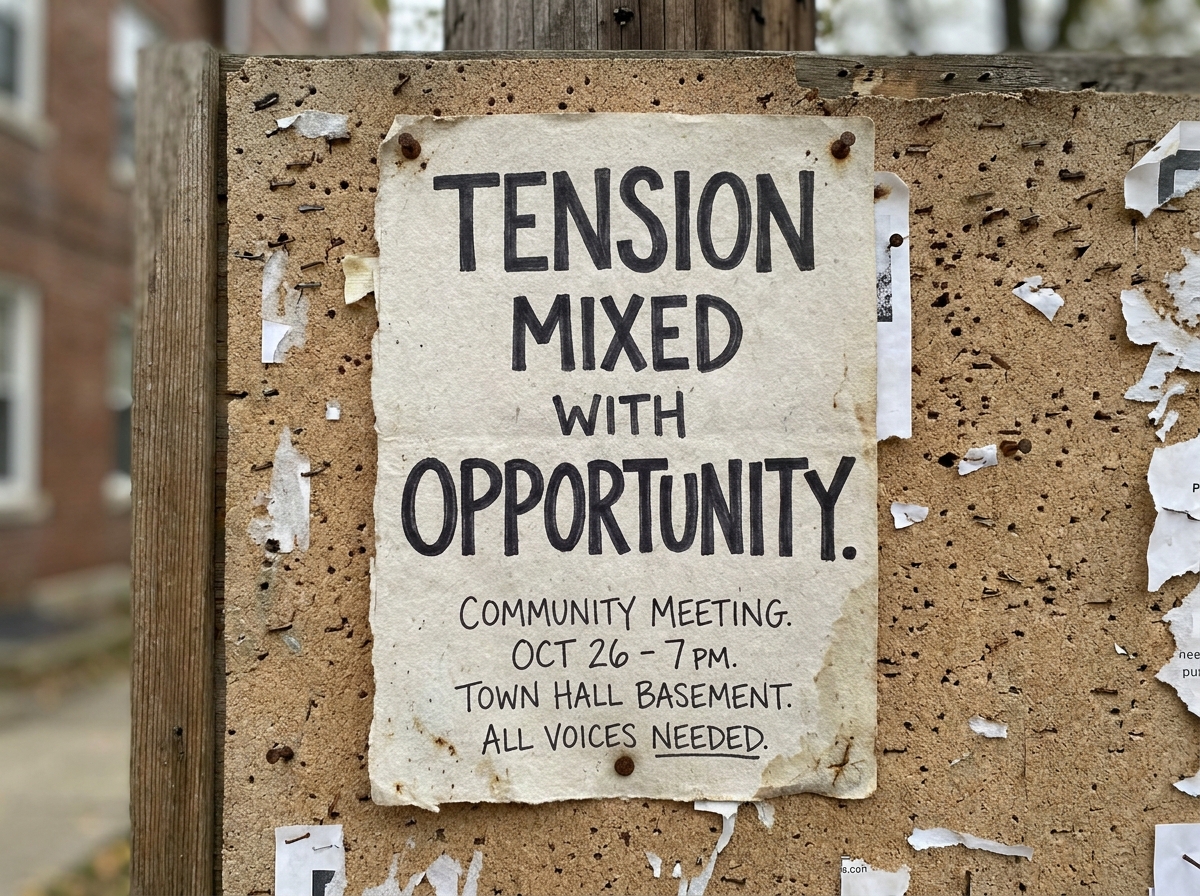 TENSION
MIXED
WITH
OPPORTUNITY.
COMMUNITY MEETING.
OCT 26 - 7 PM.
TOWN HALL BASEMENT.
ALL VOICES NEEDED.